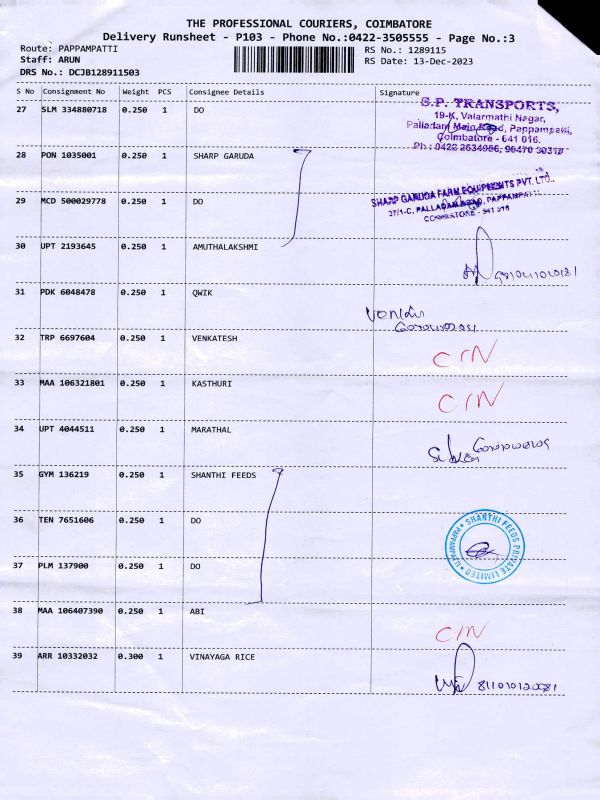 THE PROFESSIONAL COURIERS, COIMBATORE
Delivery Runsheet - P103 - Phone No.:0422-3505555 - Page No.:3
Route: PAPPAMPATTI
RS No.: 1289115
Staff: ARUN
RS Date: 13-Dec-2023
DRS No.: DCJB128911503
S No Consignment No Weight PCS Consignee Details Signature
27 SLM 334880718 0.250 1 DO
S.P. TRANSPORTS,
19-K, Valarmathi Nagar,
Palladam Main Road, Pappampatti,
Coimbatore - 641 016.
28 PON 1035001 0.250 1 SHARP GARUDA
SHARP GARUDA FARM EQUIPMENTS PVT. LTD.,
29 MCD 500029778 0.250 1 DO
37/1-C, PALLADAM ROAD, PAPPAMPATTI
COIMBATORE - 641 016
30 UPT 2193645 0.250 1 AMUTHALAKSHMI
31 PDK 6048478 0.250 1 QWIK
32 TRP 6697604 0.250 1 VENKATESH
C/N
33 MAA 106321801 0.250 1 KASTHURI
C/N
34 UPT 4044511 0.250 1 MARATHAL
35 GYM 136219 0.250 1 SHANTHI FEEDS
36 TEN 7651606 0.250 1 DO
SHANTHI FEEDS PRIVATE LIMITED
37 PLM 137900 0.250 1 DO
38 MAA 106407390 0.250 1 ABI
C/N
39 ARR 10332032 0.300 1 VINAYAGA RICE